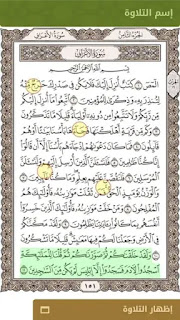 إسم التلاوة
الجزء الثامن سورة الأعراف
سورة الأعراف
بسم الله الرحمن الرحيم
الٓمٓصٓ ١ كتب أنزل إليك فلا يكن في صدرك حرج منه
لتنذر به وذكرى للمؤمنين ٢ اتبعوا ما أنزل إليكم
من ربكم ولا تتبعوا من دونه أولياء قليلا ما تذكرون ٣
وكم من قرية أهلكنها فجاءها بأسنا بيتا أو هم قائلون ٤
فما كان دعوىهم إذ جاءهم بأسنا إلا أن قالوا إنا كنا
ظلمين ٥ فلنسئلن الذين أرسل إليهم ولنسئلن
المرسلين ٦ فلنقصن عليهم بعلم وما كنا غائبين ٧
والوزن يومئذ الحق فمن ثقلت موزينه فأولئك هم
المفلحون ٨ ومن خفت موزينه فأولئك الذين خسروا
أنفسهم بما كانوا بئايتنا يظلمون ٩ ولقد مكنكم
في الأرض وجعلنا لكم فيها معيش قليلا ما تشكرون ١٠
ولقد خلقنكم ثم صورنكم ثم قلنا للملئكة اسجدوا لأدم
فسجدوا إلا إبليس لم يكن من السجدين ١١
١٥١
إظهار التلاوة